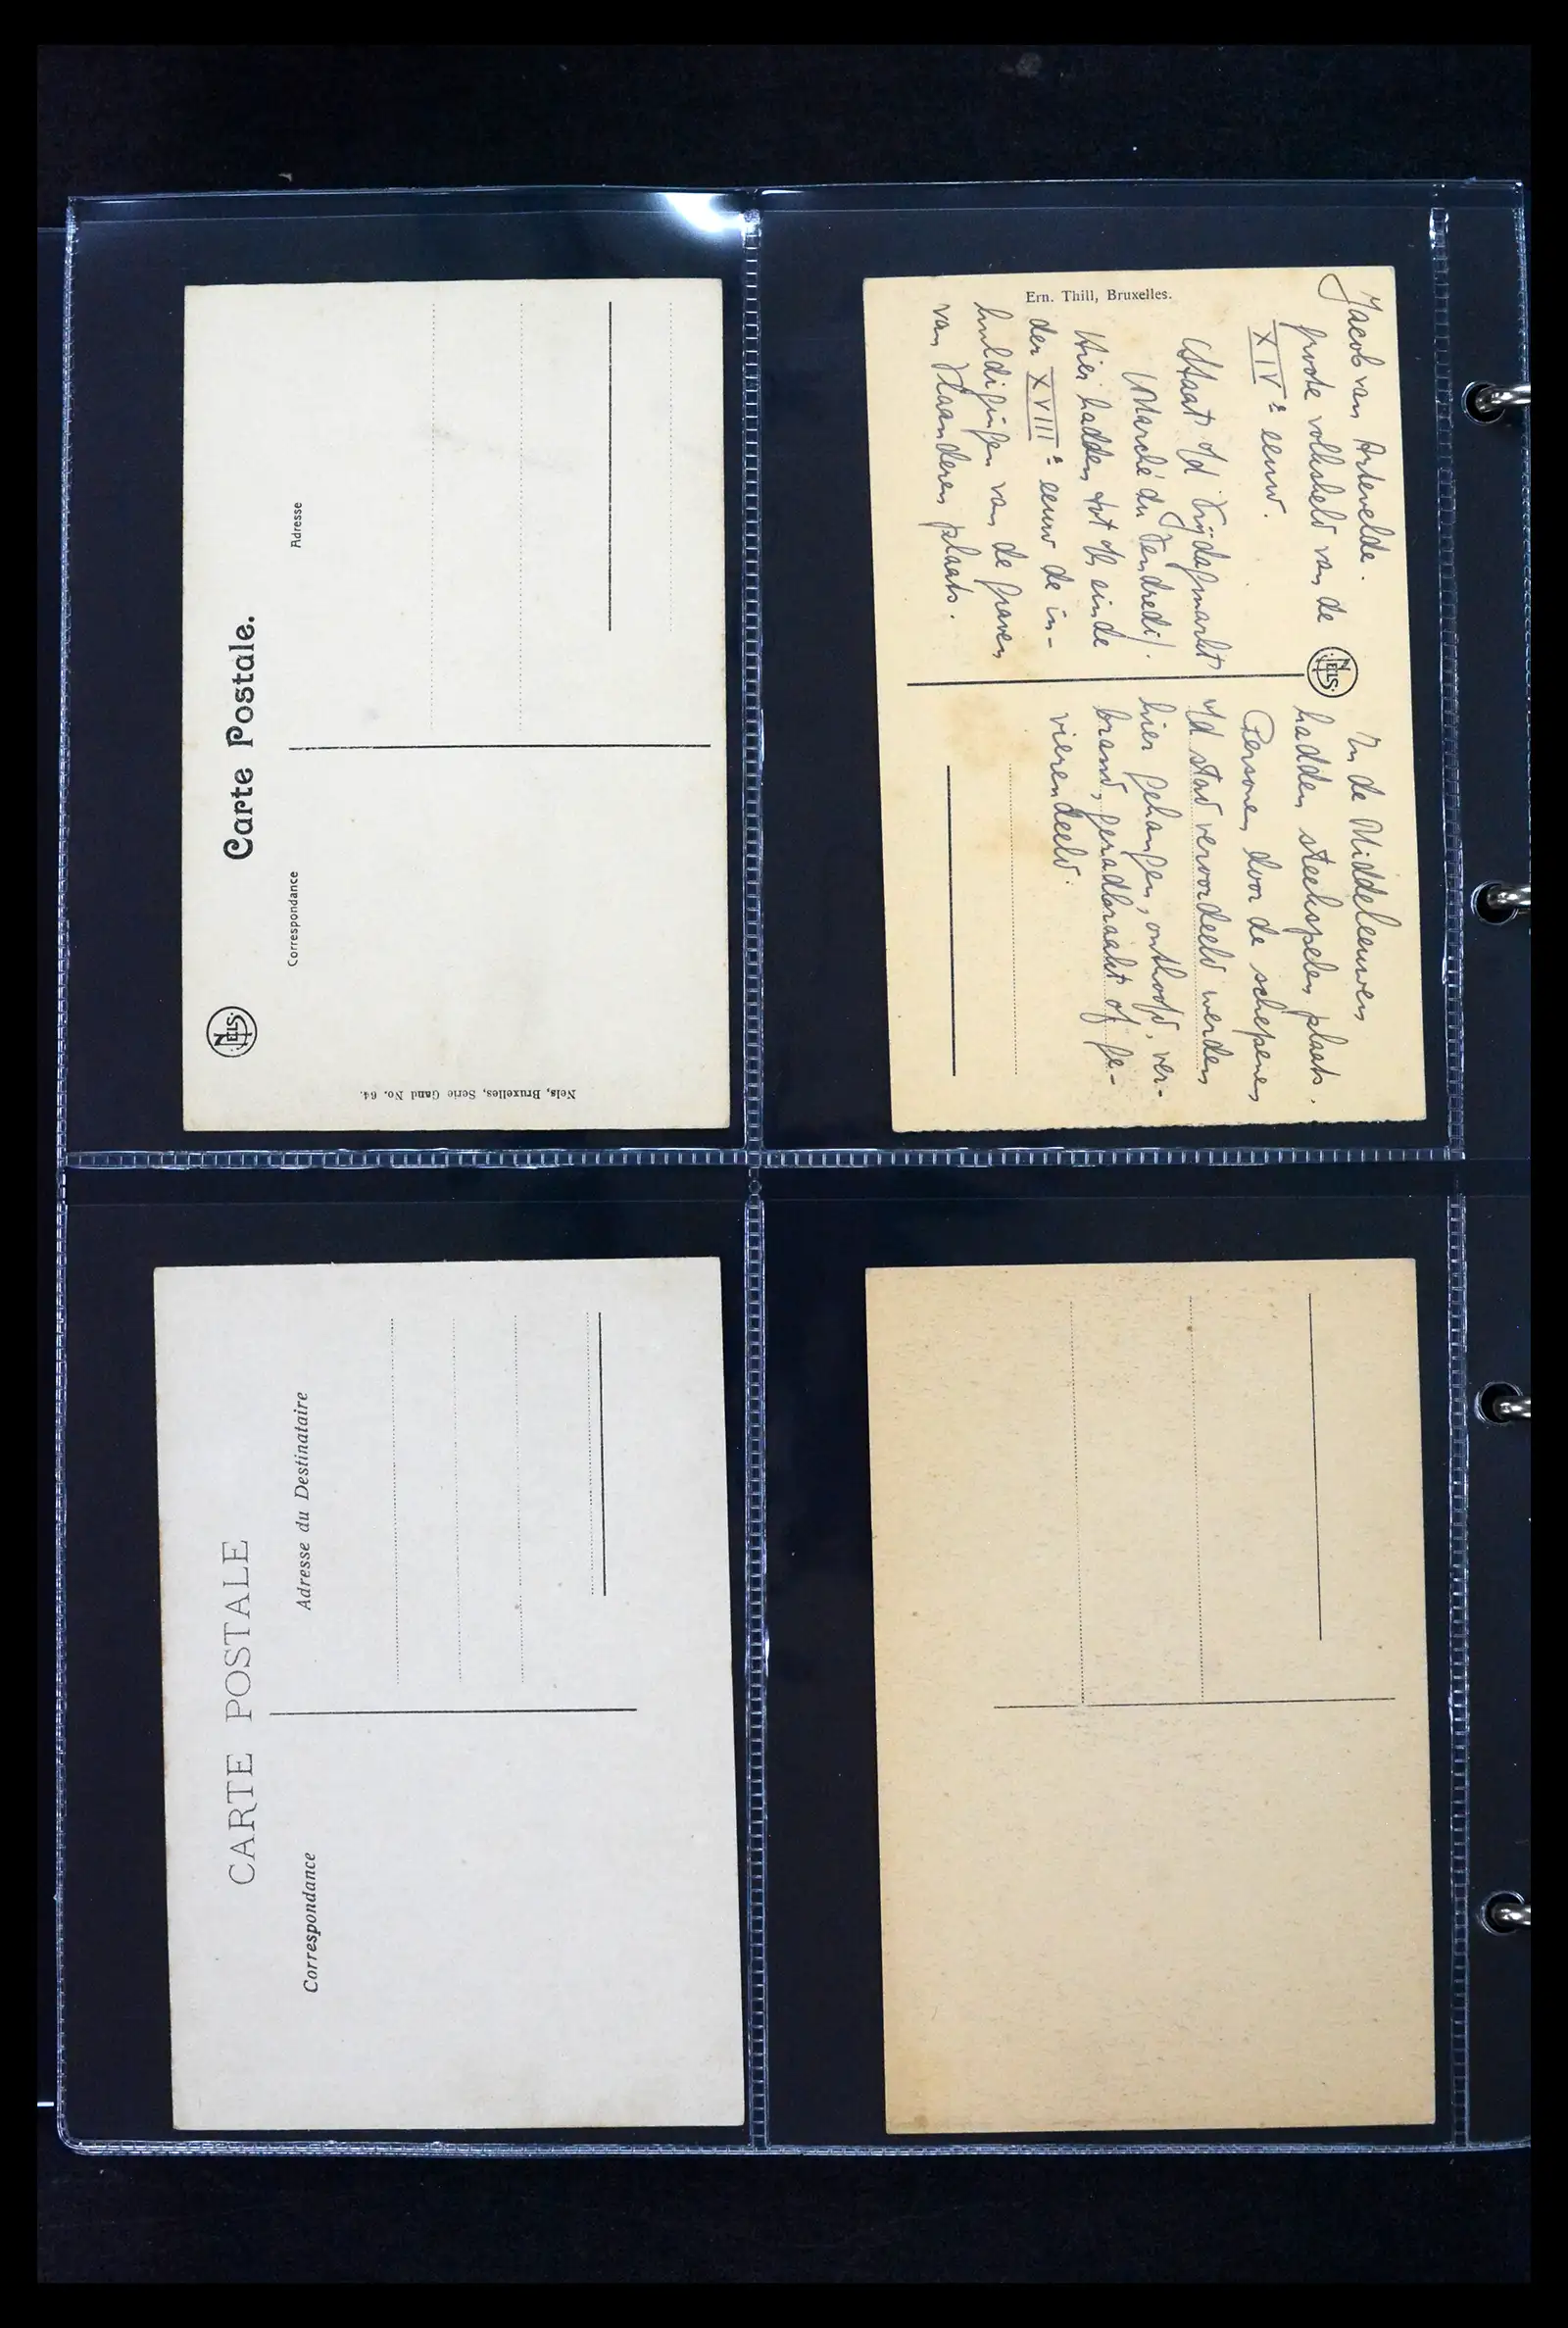 Carte Postale.
Correspondance
Adresse
NELS
Nels, Bruxelles, Serie Gand No. 64.
Ern. Thill, Bruxelles.
Jacob van Artevelde.
grote volksheld van de
XIVe eeuw.
Staat o/d Vrijdagmarkt
(Marché du Vendredi).
Hier hadden tot o/h einde
der XVIIIe eeuw de in-
huldigingen van de graven
van Vlaanderen plaats.
NELS
In de Middeleeuwen
hadden steekspelen plaats.
Personen door de schepenen
v/d stad veroordeeld werden
hier gehangen, onthoofd, ver-
brand, geradbraakt of ge-
vierendeeld.
CARTE POSTALE
Correspondance
Adresse du Destinataire